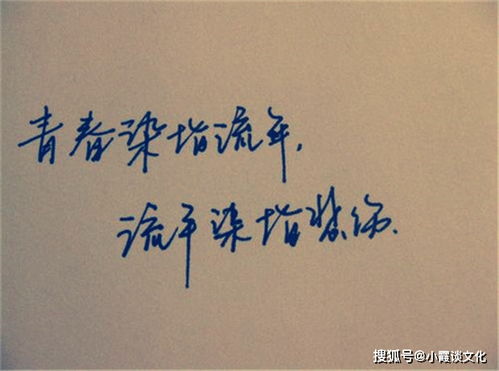 青春染指流年,
流年染指悲伤.
搜狐号@小霞谈文化